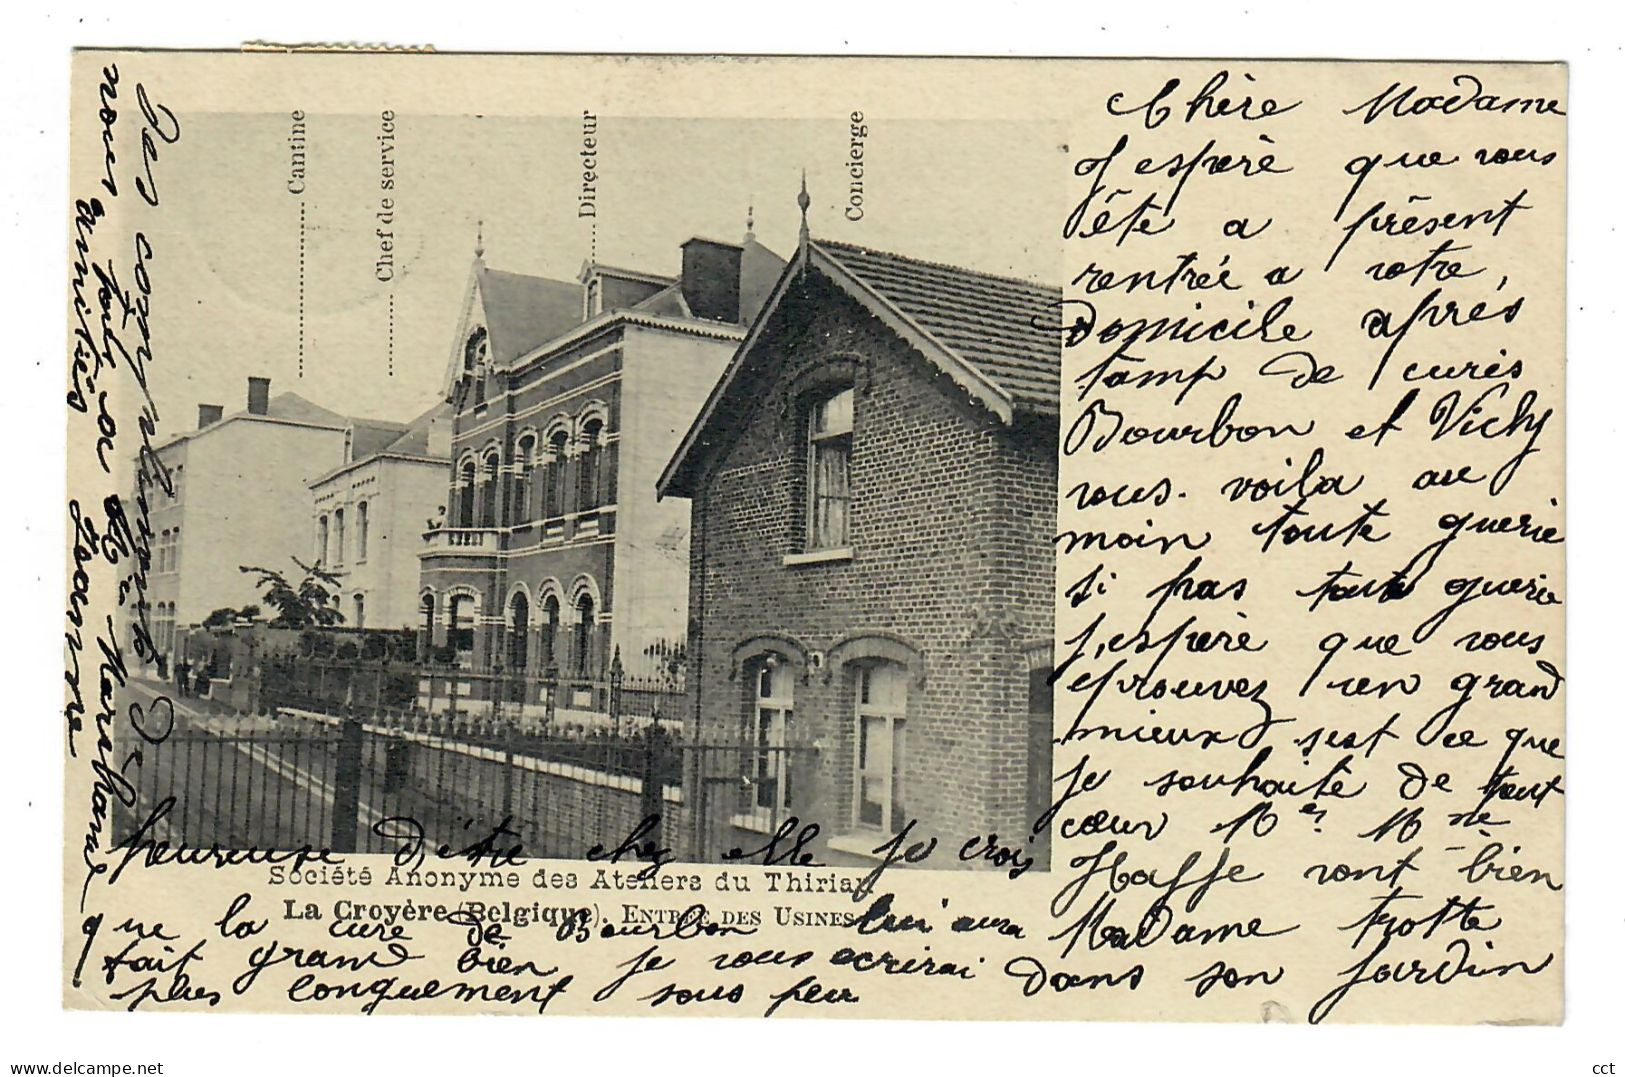 Cantine
Chef de service
Directeur
Concierge
Chère Madame
J espère que vous
ète a prèsent
rentrée a votre
Domicile aprés
tamp de curés
Bourbon et Vichy
vous voila au
moin toute guerie
si pas toute guerie
j,espère que vous
eprouvez un grand
mieux s,est ce que
je souhaite de tout
cœur Mer Mme
Haffe vont bien
Madame trotte
dans son Jardin
heureuse D'être chez elle je crois
que la cure de Bourbon lui aura
fait grand bien je vous ecrirai
plus longuement sous peu
Société Anonyme des Ateliers du Thiriau
La Croyère (Belgique). ENTRÉE DES USINES
Des compliments De
nous tous a Mr & Marchand
amitiès